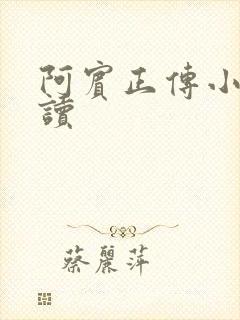 阿賓正傳小
讀
蔡麗萍